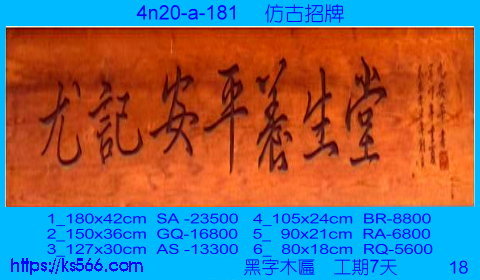 4n20-a-181 仿古招牌
尤記安平養生堂
1_180x42cm SA -23500 4_105x24cm BR-8800
2_150x36cm GQ-16800 5_ 90x21cm RA-6800
3_127x30cm AS -13300 6_ 80x18cm RQ-5600
https://ks566.com 黑字木匾 工期7天 18